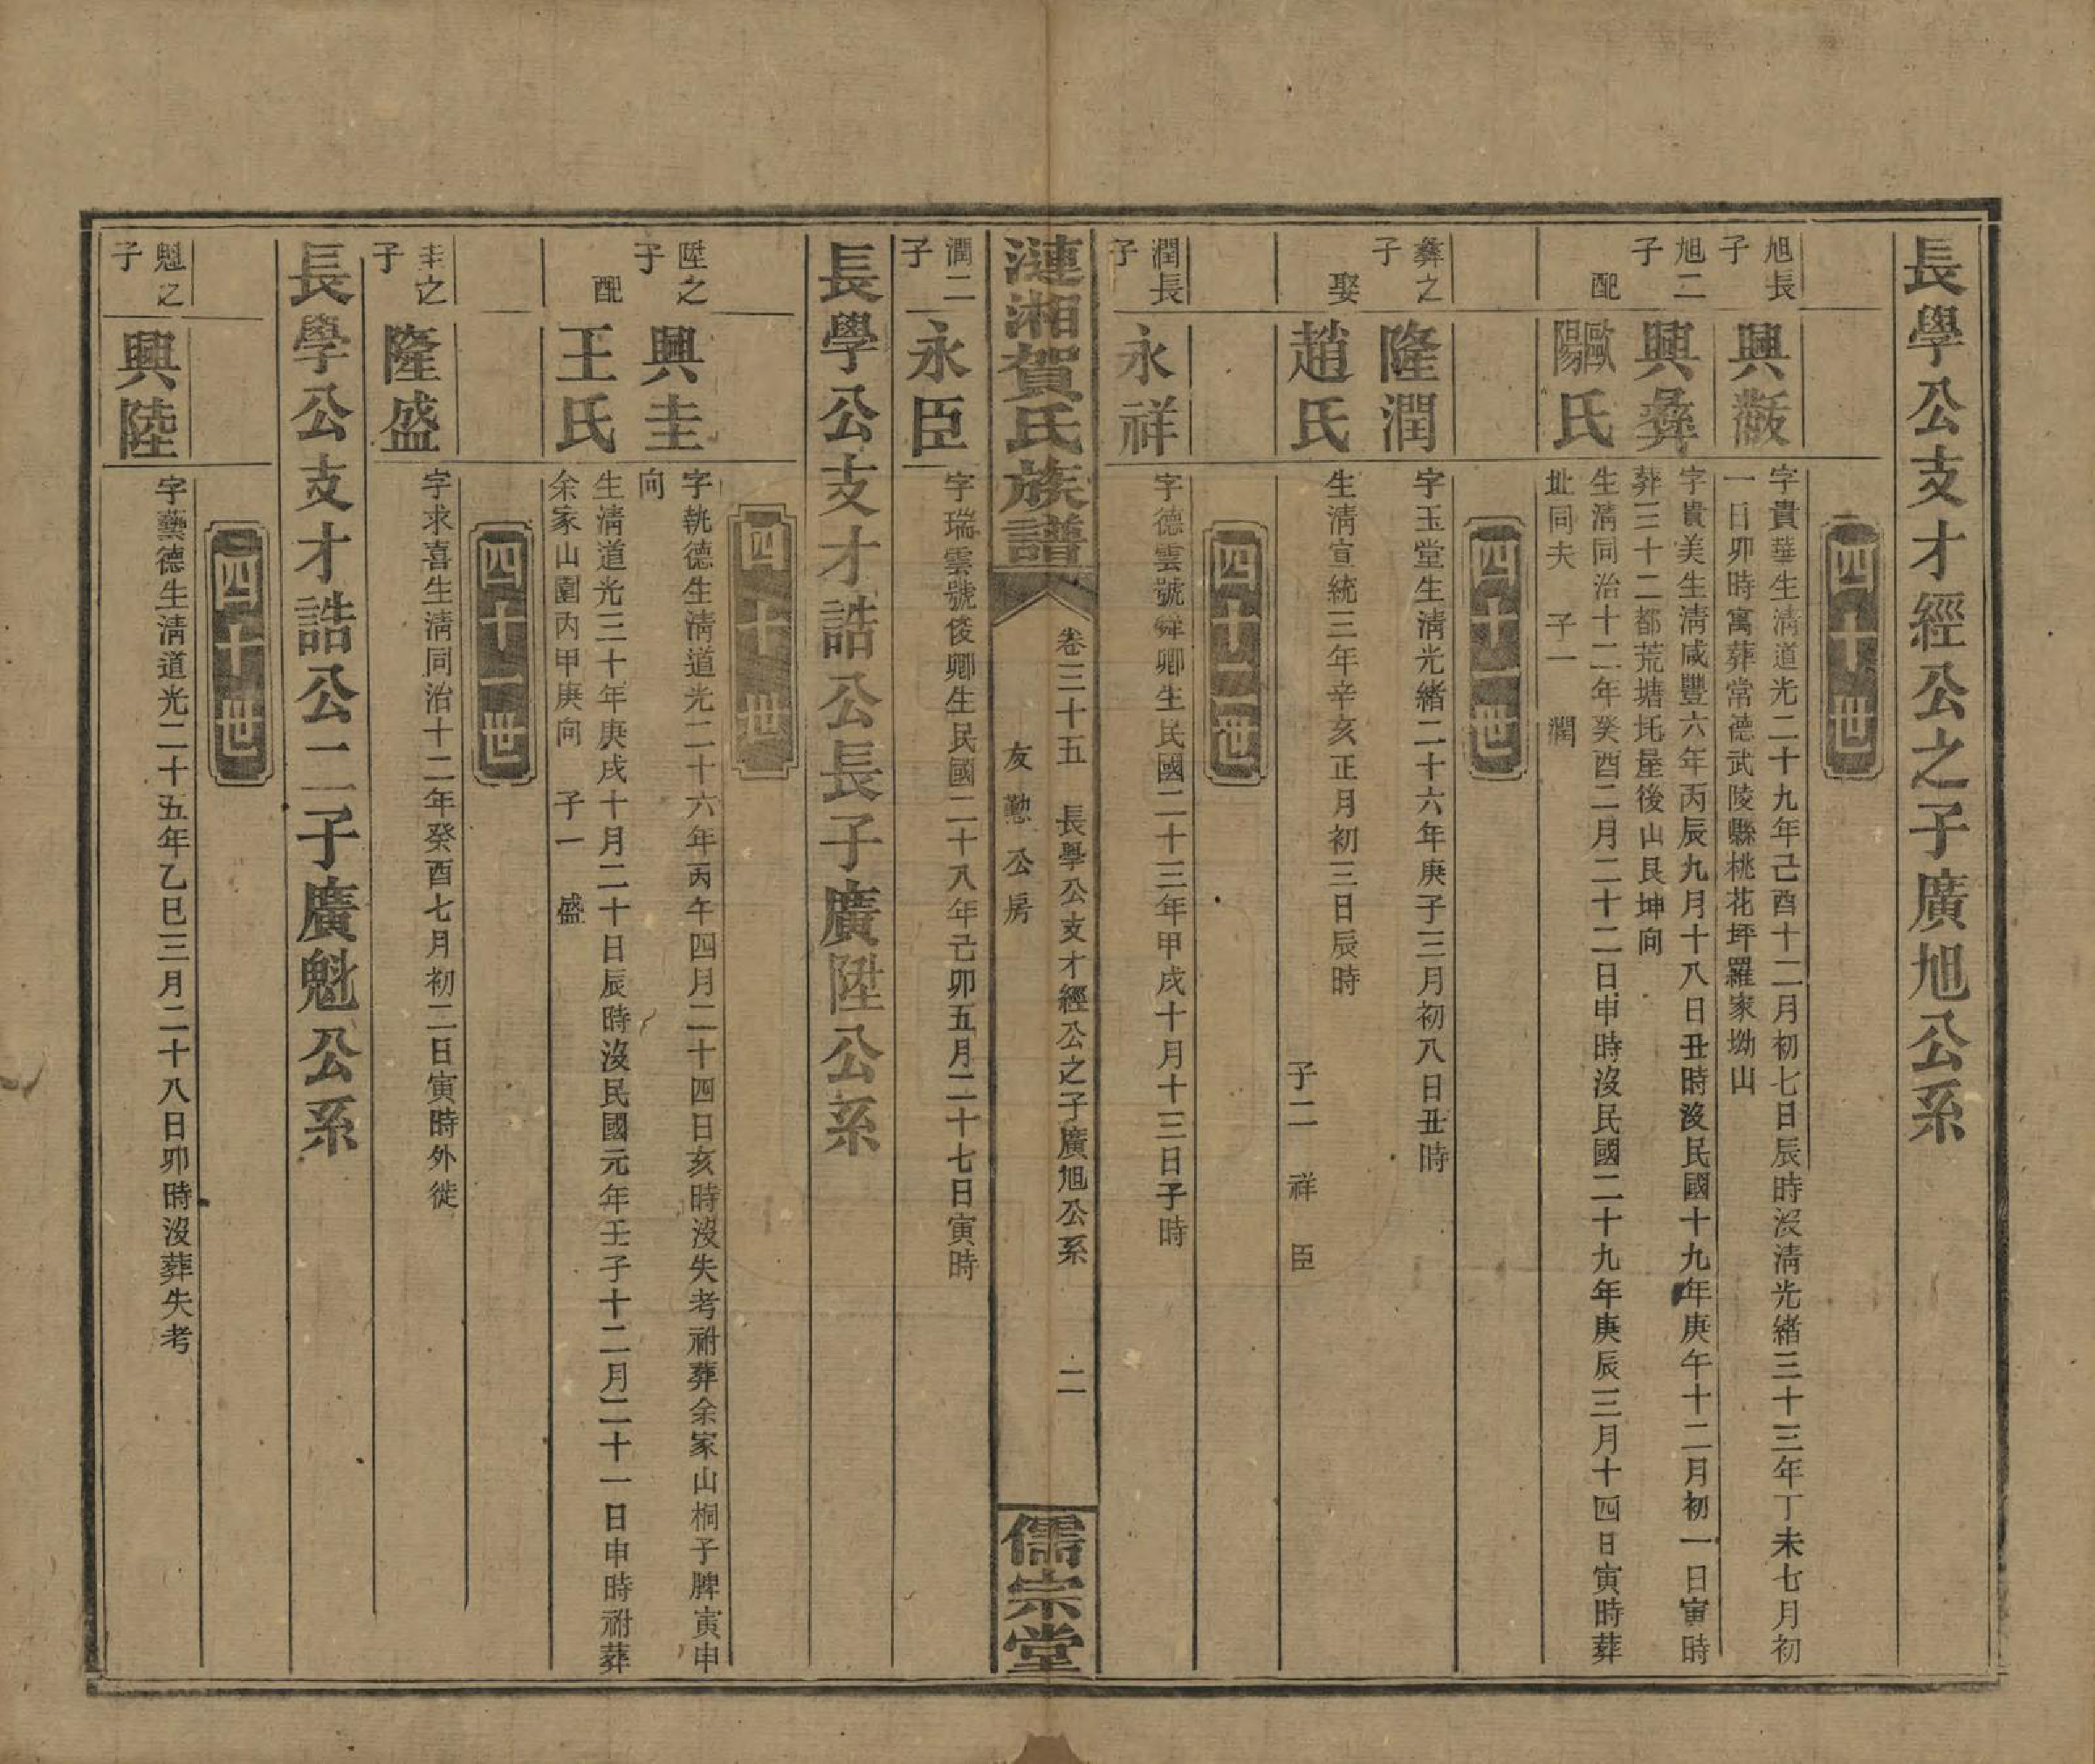 長學公支才經公之子廣旭公系
四十世
旭長子
興黻
字貴華生清道光二十九年己酉十二月初七日辰時沒清光緒三十三年丁未七月初
一日卯時寓葬常德武陵縣桃花坪羅家坳山
旭二子
興彝
字貴美生清咸豐六年丙辰九月十八日丑時沒民國十九年庚午十二月初一日寅時
葬三十二都荒塘圫屋後山艮坤向
配
歐陽氏
生清同治十二年癸酉二月二十二日申時沒民國二十九年庚辰三月十四日寅時葬
坒同夫 子一 潤
四十一世
彝之子
隆潤
字玉堂生清光緒二十六年庚子三月初八日丑時
娶
趙氏
生清宣統三年辛亥正月初三日辰時
子二 祥 臣
四十二世
潤長子
永祥
字德雲號舜卿生民國二十三年甲戌十月十三日子時
漣湘賀氏族譜
卷三十五 長學公支才經公之子廣旭公系 二
友懃公房
儒宗堂
潤二子
永臣
字瑞雲號俊卿生民國二十八年己卯五月二十七日寅時
長學公支才誥公長子廣陞公系
四十世
陞之子
興圭
字執德生清道光二十六年丙午四月二十四日亥時沒失考祔葬余家山桐子脾寅申
向
配
王氏
生清道光三十年庚戌十月二十日辰時沒民國元年壬子十二月二十一日申時祔葬
余家山園內甲庚向 子一 盛
四十一世
圭之子
隆盛
字求喜生清同治十二年癸酉七月初二日寅時外徙
長學公支才誥公二子廣魁公系
四十世
魁之子
興陸
字藝德生清道光二十五年乙巳三月二十八日卯時沒葬失考